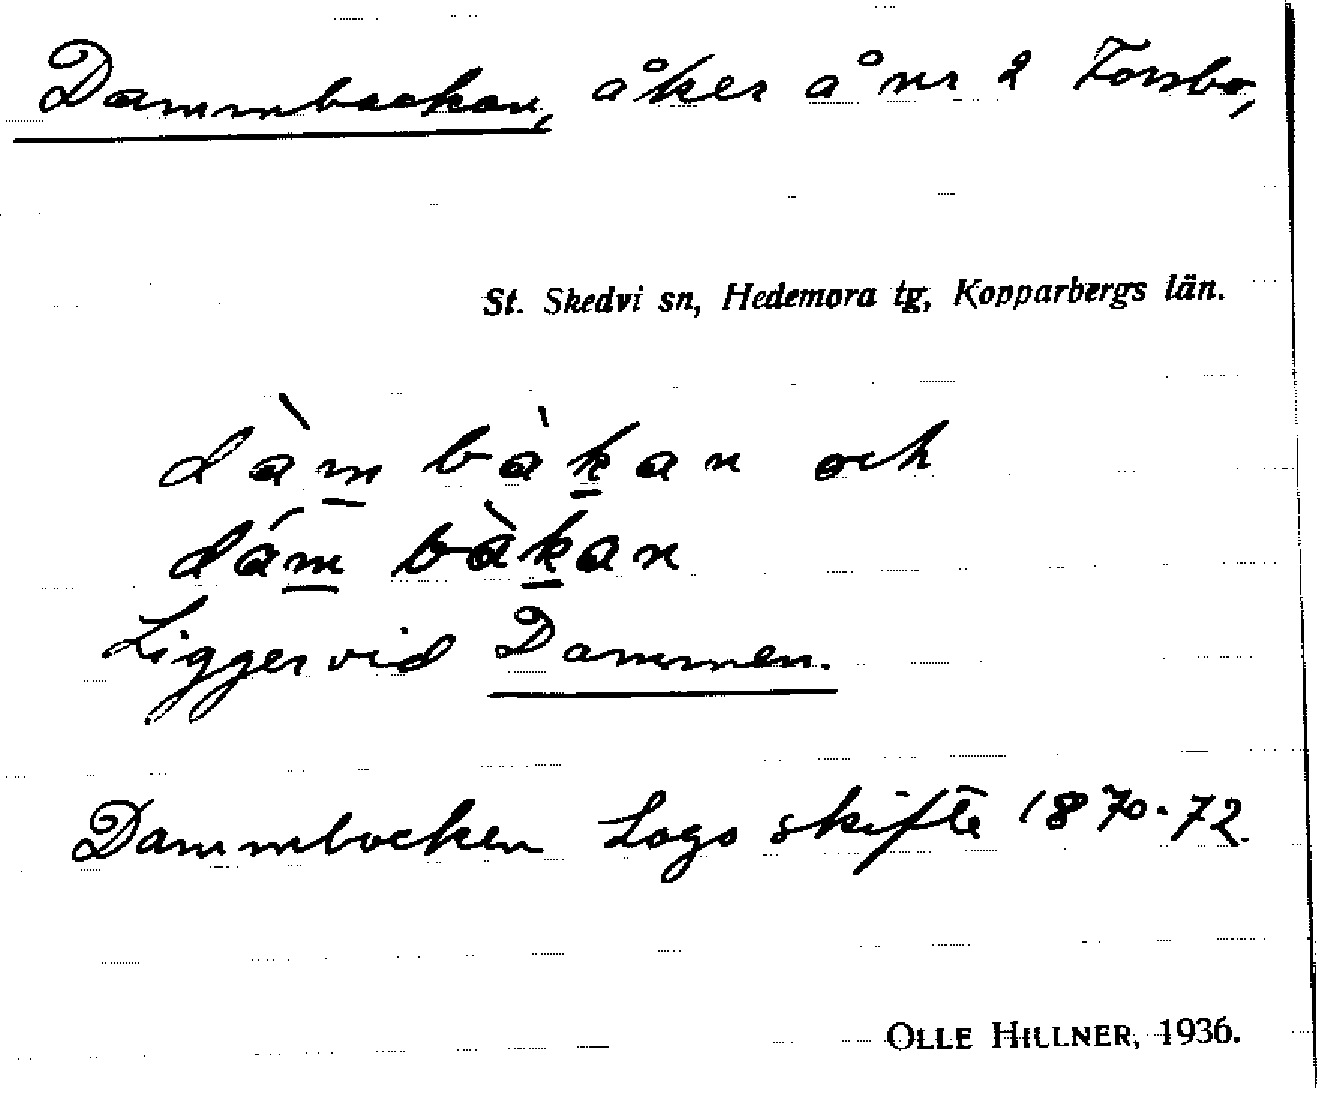 Dammbackan, åker å nr 2 Forsbo,
St. Skedvi sn, Hedemora tg, Kopparbergs län.
dàm bàkan och
dám bàkan
Ligger vid Dammen.
Dammbacken Laga skifte 1870-72.
OLLE HILLNER, 1936.